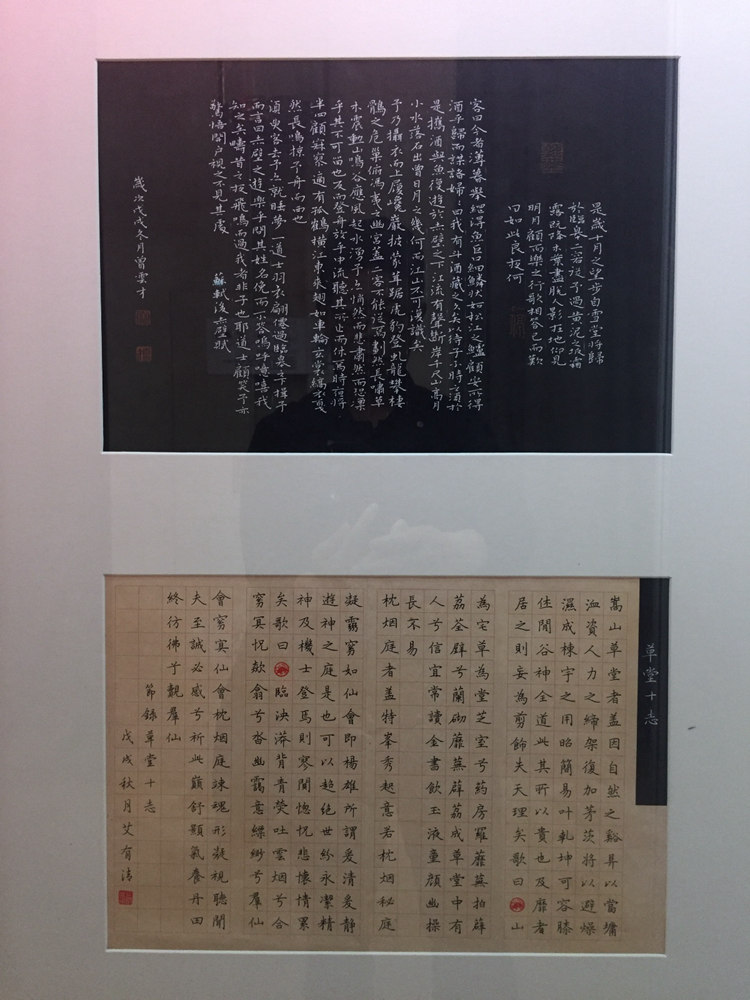 是歲十月之望步自雪堂將歸
於臨皋二客從予過黃泥之坂霜
露既降木葉盡脫人影在地仰見
明月顧而樂之行歌相答已而歎
曰如此良夜何
客曰今者薄暮舉網得魚巨口細鱗狀如松江之鱸顧安所得
酒乎歸而謀諸婦婦曰我有斗酒藏之久矣以待子不時之須於
是攜酒與魚復遊於赤壁之下江流有聲斷岸千尺山高月
小水落石出曾日月之幾何而江山不可復識矣
予乃攝衣而上履巉巖披蒙茸踞虎豹登虬龍攀棲
鶻之危巢俯馮夷之幽宮蓋二客不能從焉劃然長嘯草
木震動山鳴谷應風起水湧予亦悄然而悲肅然而恐凜
乎其不可留也反而登舟放乎中流聽其所止而休焉時夜將
半四顧寂寥適有孤鶴橫江東來翅如車輪玄裳縞衣戛
然長鳴掠予舟而西也
須臾客去予亦就睡夢一道士羽衣翩僊過臨皋之下揖予
而言曰赤壁之遊樂乎問其姓名俛而不答嗚呼噫嘻我
知之矣疇昔之夜飛鳴而過我者非子也耶道士顧笑予亦
驚悟開戶視之不見其處 蘇軾後赤壁賦
歲次戊戌冬月曾雲才
草堂十志
嵩山草堂者蓋因自然之谿阜以當墉
洫資人力之締架復加茅茨將以避燥
濕成棟宇之用昭簡易叶乾坤可容膝
休閒谷神全道此其所以貴也及靡者
居之則妄為剪飾失天理矣歌曰山
為宅草為堂芝室兮药房羅蘼蕪拍薜
荔荃壁兮蘭砌蘼蕪薜荔成草堂中有
人兮信宜常讀金書飲玉液童顏幽操
長不易
枕烟庭者蓋特峯秀起意若枕烟秘庭
凝靄窅如仙會即楊雄所謂爰清爰静
遊神之庭是也可以超絕世紛永潔精
神及機士登焉則寥闃惚怳悲懷情累
矣歌曰臨泱漭背青熒吐雲烟兮合
窅冥怳歘翕兮沓幽靄意縹緲兮羣仙
會窅冥仙會枕烟庭竦魂形凝視聽聞
夫至誠必感兮祈此巔舒顥氣養丹田
終彷彿兮覯羣仙
節錄草堂十志
戊戌秋月艾有清